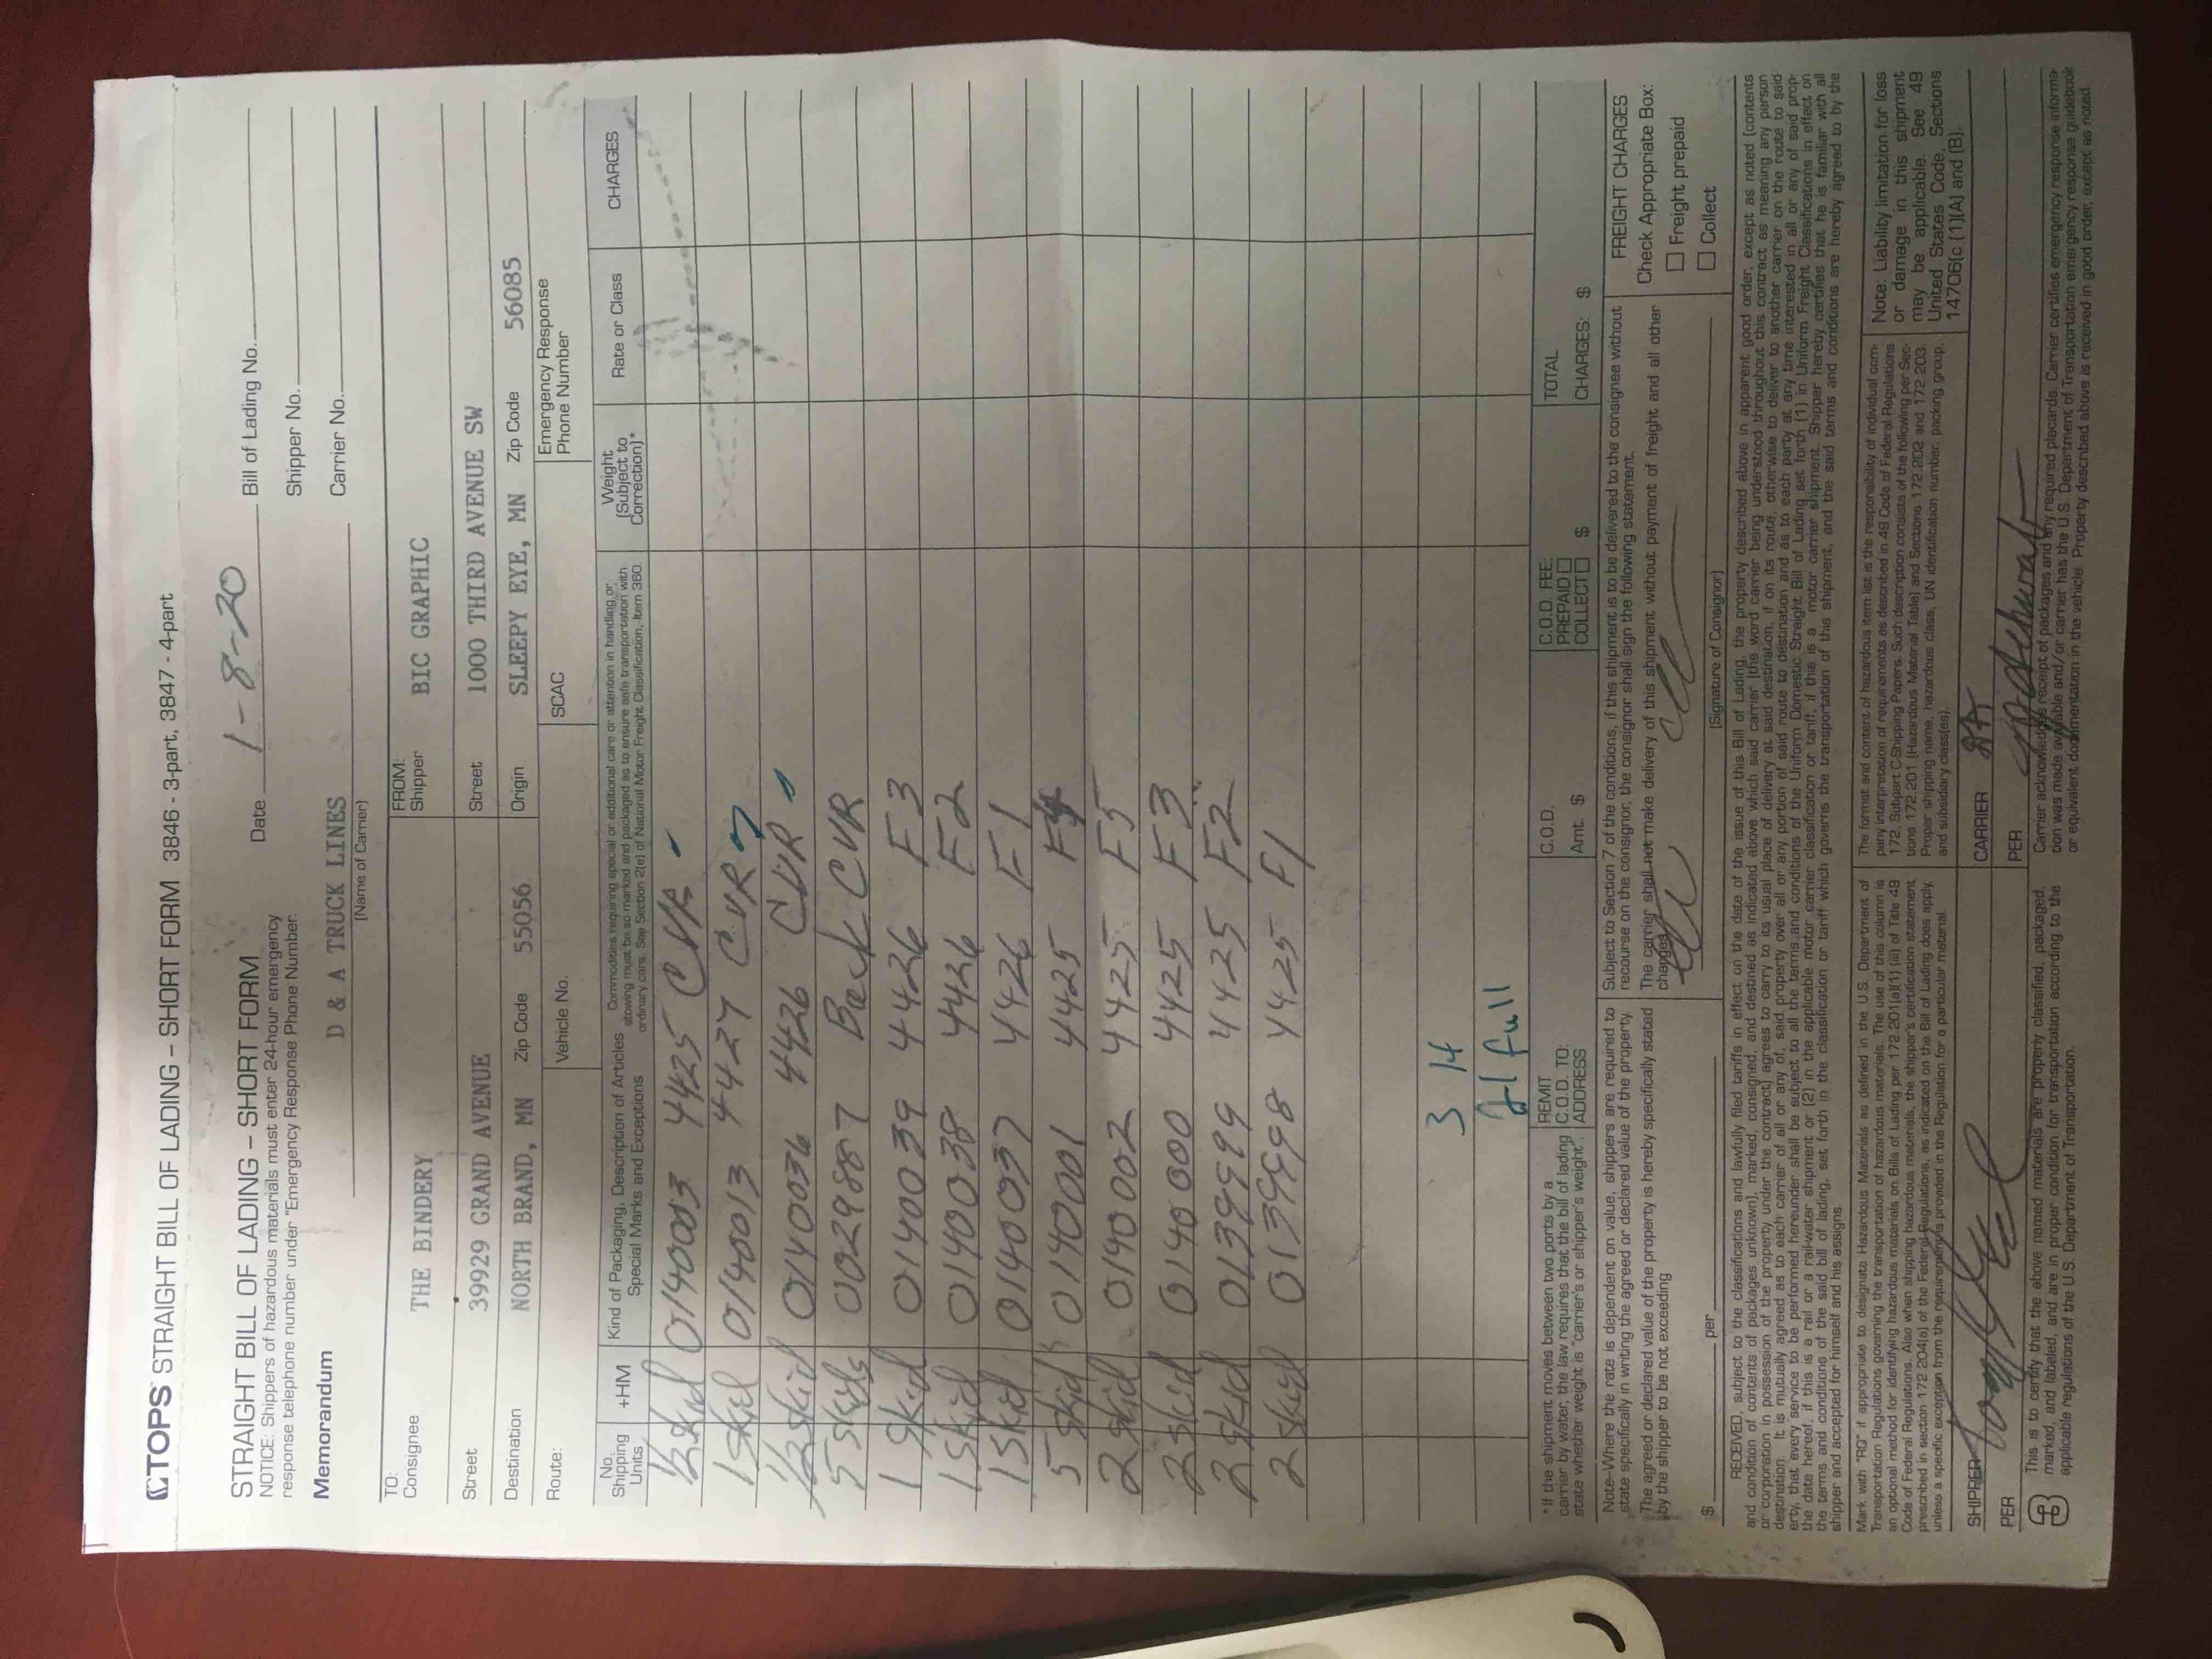 TOPS STRAIGHT BILL OF LADING – SHORT FORM 3846 - 3-part, 3847 - 4-part
STRAIGHT BILL OF LADING – SHORT FORM
NOTICE: Shippers of hazardous materials must enter 24-hour emergency
response telephone number under "Emergency Response Phone Number.
Date 1-8-20
Bill of Lading No.
Shipper No.
Carrier No.
Memorandum
D & A TRUCK LINES
(Name of Carrier)
TO:
Consignee THE BINDERY
FROM:
Shipper BIC GRAPHIC
Street 39929 GRAND AVENUE
Street 1000 THIRD AVENUE SW
Destination NORTH BRAND, MN Zip Code 55056
Origin SLEEPY EYE, MN Zip Code 56085
Route:
Vehicle No.
SCAC
Emergency Response
Phone Number
No.
Shipping
Units
+HM
Kind of Packaging, Description of Articles
Special Marks and Exceptions
Commodities requiring special or additional care or attention in handling or
stowing must be so marked and packaged as to ensure safe transportation with
ordinary care. See Section 2(e) of National Motor Freight Classification, Item 360.
Weight
(Subject to
Correction)*
Rate or Class
CHARGES
1/2 skid 0140003 4425 CVR
1 skid 0140013 4427 CVR
1/2 skid 0140036 4426 CVR
5 skids 0029887 Back CVR
1 skid 0140039 4426 F3
1 skid 0140038 4426 F2
1 skid 0140037 4426 F1
5 skid 0140001 4425 F4
2 skid 0140002 4425 F5
2 skid 0140000 4425 F3
2 skid 0139999 4425 F2
2 skid 0139998 4425 F1
full
* If the shipment moves between two ports by a
carrier by water, the law requires that the bill of lading
state whether weight is carrier's or shipper's weight.
REMIT
C.O.D. TO:
ADDRESS
C.O.D.
Amt. $
C.O.D. FEE:
PREPAID
COLLECT $
TOTAL
CHARGES: $
Note–Where the rate is dependent on value, shippers are required to
state specifically in writing the agreed or declared value of the property.
The agreed or declared value of the property is hereby specifically stated
by the shipper to be not exceeding
$ per
Subject to Section 7 of the conditions, if this shipment is to be delivered to the consignee without
recourse on the consignor, the consignor shall sign the following statement.
The carrier shall not make delivery of this shipment without payment of freight and all other
changes.
(Signature of Consignor)
FREIGHT CHARGES
Check Appropriate Box:
Freight prepaid
Collect
RECEIVED, subject to the classifications and lawfully filed tariffs in effect on the date of the issue of this Bill of Lading, the property described above in apparent good order, except as noted (contents
and condition of contents of packages unknown), marked, consigned, and destined as indicated above which said carrier (the word carrier being understood throughout this contract as meaning any person
or corporation in possession of the property under the contract) agrees to carry to its usual place of delivery at said destination, if on its route, otherwise to deliver to another carrier on the route to said
destination. It is mutually agreed as to each carrier of all or any of, said property over all or any portion of said route to destination and as to each party at any time interested in all or any of said prop-
erty, that every service to be performed hereunder shall be subject to all the terms and conditions of the Uniform Domestic Straight Bill of Lading set forth (1) in Uniform Freight Classifications in effect on
the date hereof, if this is a rail or a rail-water shipment or (2) in the applicable motor carrier classification or tariff, if this is a motor carrier shipment. Shipper hereby certifies that he is familiar with all
the terms and conditions of the said bill of lading, set forth in the classification or tariff which governs the transportation of this shipment, and the said terms and conditions are hereby agreed to by the
shipper and accepted for himself and his assigns
Mark with "RQ" if appropriate to designate Hazardous Materials as defined in the U.S. Department of
Transportation Regulations governing the transportation of hazardous materials. The use of this column is
an optional method for identifying hazardous materials on Bills of Lading per 172.201(a)(1) (iii) of Title 49
Code of Federal Regulations. Also when shipping hazardous materials, the shipper's certification statement
prescribed in section 172.204(a) of the Federal Regulations, as indicated on the Bill of Lading does apply,
unless a specific exception from the requirement is provided in the Regulation for a particular material.
The format and content of hazardous item list is the responsibility of individual com-
pany interpretation of requirements as described in 49 Code of Federal Regulations
172, Subpart C-Shipping Papers. Such description consists of the following per Sec-
tions 172.201 (Hazardous Material Table) and Sections 172.202 and 172.203.
Proper shipping name, hazardous class, UN identification number, packing group,
and subsidiary class(es).
Note: Liability limitation for loss
or damage in this shipment
may be applicable. See 49
United States Code, Sections
14706(c (1)(A) and (B).
SHIPPER
PER
CARRIER
PER
This is to certify that the above named materials are properly classified, packaged,
marked, and labeled, and are in proper condition for transportation according to the
applicable regulations of the U.S. Department of Transportation.
Carrier acknowledges receipt of packages and any required placards. Carrier certifies emergency response informa-
tion was made available and/or carrier has the U.S. Department of Transportation emergency response guidebook
or equivalent documentation in the vehicle. Property described above is received in good order, except as noted.